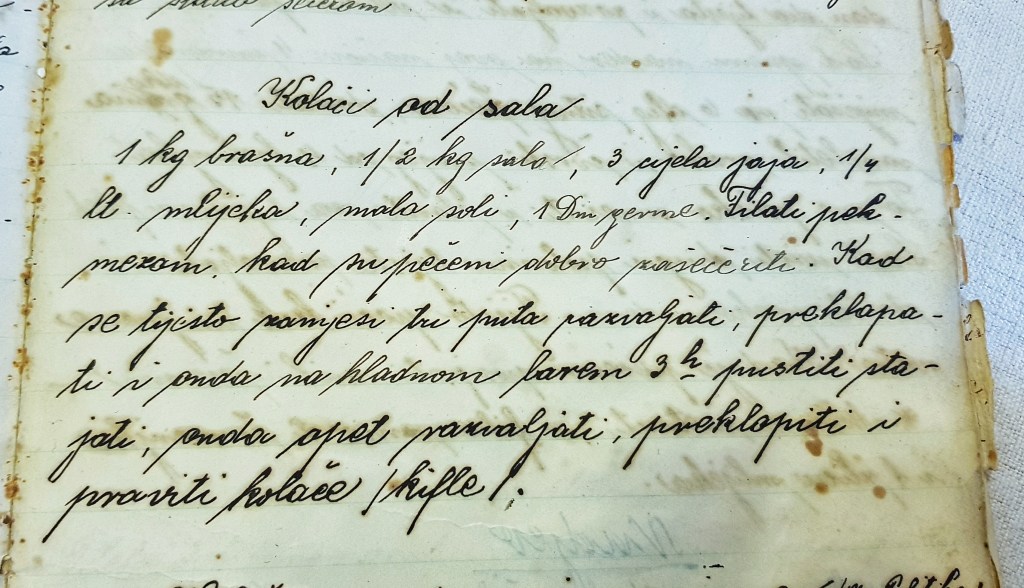 na
Kolači od sala
1 kg brašna, 1/2 kg sala, 3 cijela jaja, 1/4
lt. mlijeka, malo soli, 1 Dm germe. Filati pek-
mezom, kad su pečeni dobro zašećeriti. Kad
se tijesto zamjesi tri puta razvaljati, preklapa-
ti i onda na hladnom barem 3 h pustiti sta-
jati, onda opet razvaljati, preklopiti i
praviti kolače /kifle/.